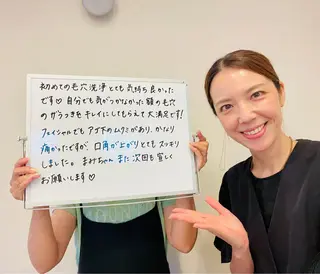 初めての毛穴洗浄とても気持ち良かった
です♡自分でも気がつかなかった額の毛穴
のザラつきをキレイにしてもらえて大満足です!
フェイシャルでもアゴ下のムクミがあり、かなり
痛かったですが、口角が上がりとてもスッキリ
しました。まみちゃん また次回も宜しく
お願いします♡